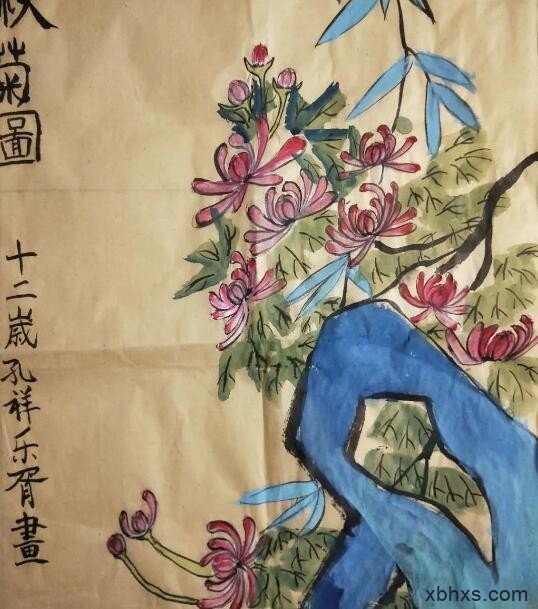 秋菊圖
十二歲孔祥乐胥畫
xbhxs.com